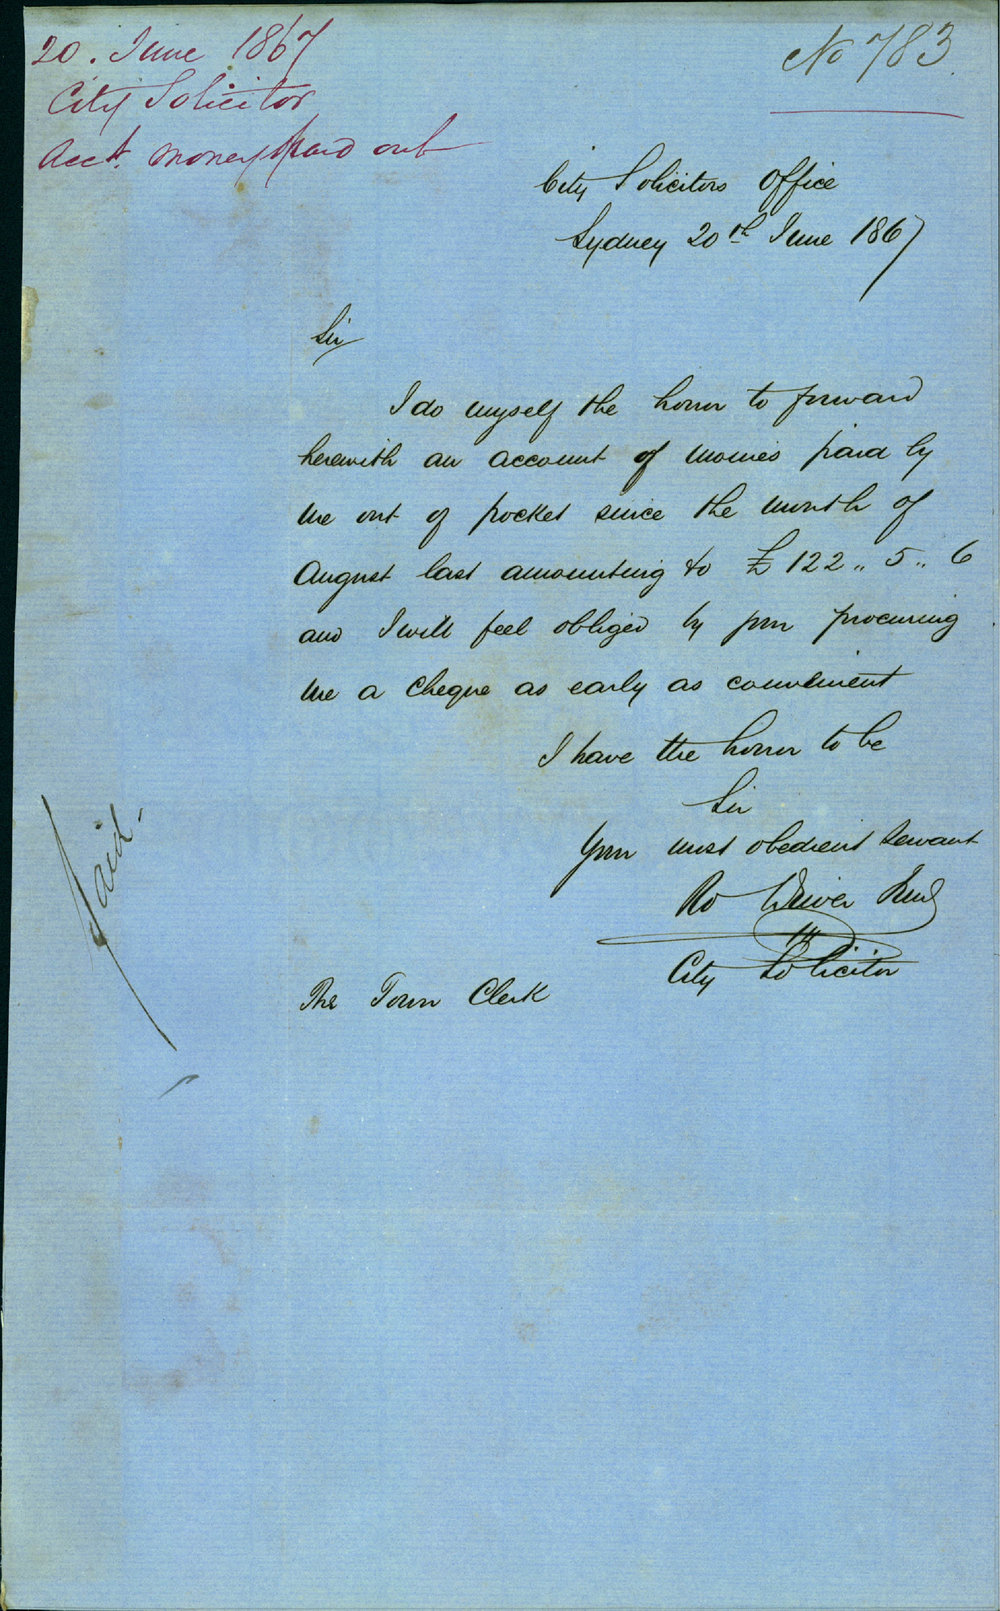 20. June 1867
City Solicitor
Acct. money paid out
No 783
City Solicitors Office
Sydney 20th June 1867
Sir
I do myself the honor to forward
herewith an account of monies paid by
me out of pocket since the month of
August last amounting to £122 .. 5 .. 6
and I will feel obliged by your procuring
me a cheque as early as convenient
I have the honor to be
Sir
Your most obedient Servant
Ro Driver Junr
City Solicitor
The Town Clerk
Paid.